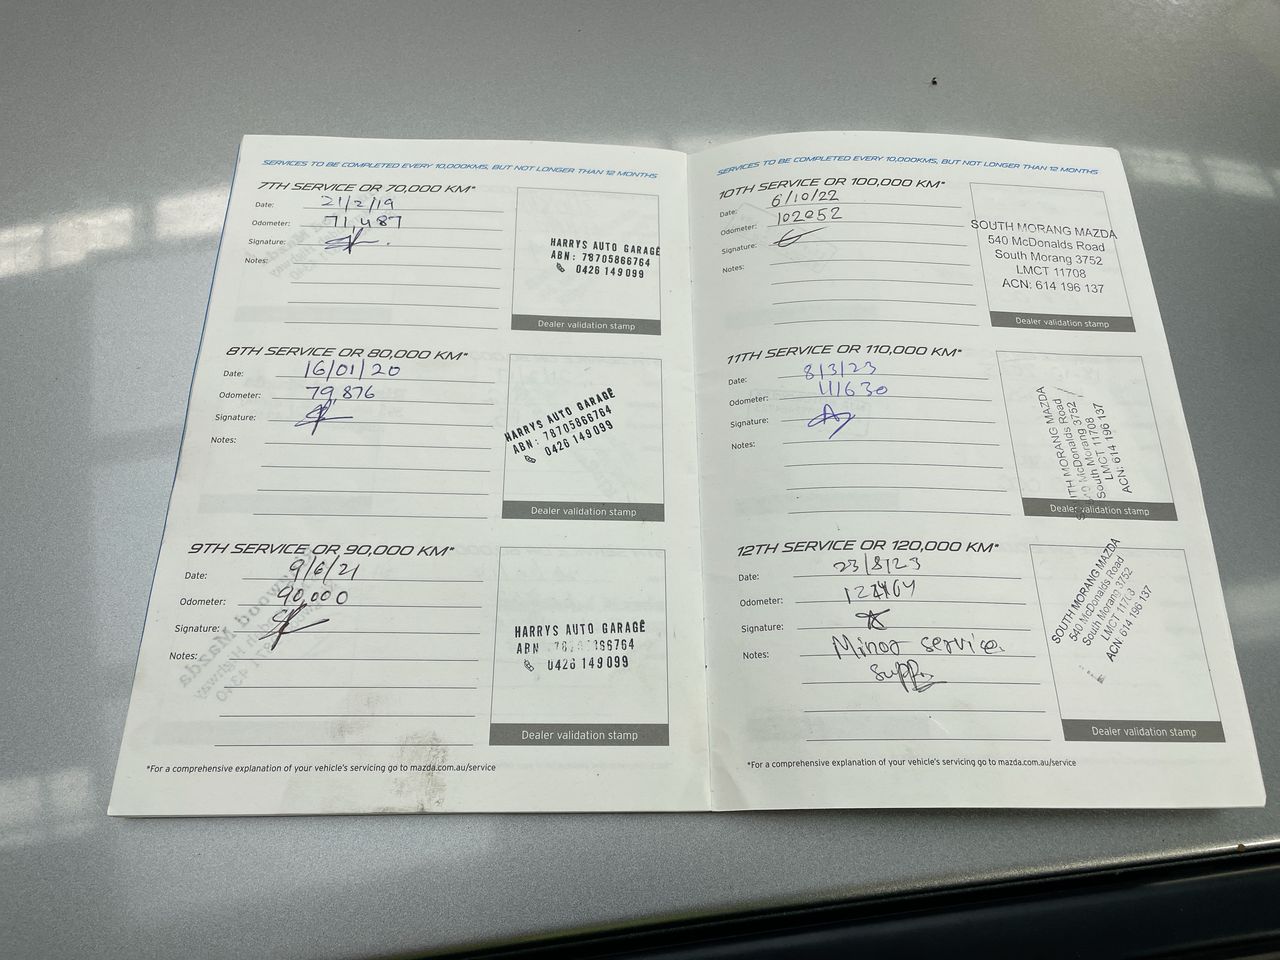 SERVICES TO BE COMPLETED EVERY 10,000KMS, BUT NOT LONGER THAN 12 MONTHS
7TH SERVICE OR 70,000 KM*
Date: 21/2/19
Odometer: 71,487
Signature:
Notes:
HARRYS AUTO GARAGE
ABN: 78705866764
0426 149 099
Dealer validation stamp
8TH SERVICE OR 80,000 KM*
Date: 16/01/20
Odometer: 79,876
Signature:
Notes:
HARRYS AUTO GARAGE
ABN: 78705866764
0426 149 099
Dealer validation stamp
9TH SERVICE OR 90,000 KM*
Date: 9/6/21
Odometer: 90,000
Signature:
Notes:
HARRYS AUTO GARAGE
ABN
0426 149 099
Dealer validation stamp
*For a comprehensive explanation of your vehicle's servicing go to mazda.com.au/service
SERVICES TO BE COMPLETED EVERY 10,000KMS, BUT NOT LONGER THAN 12 MONTHS
10TH SERVICE OR 100,000 KM*
Date: 6/10/22
Odometer: 102052
Signature:
Notes:
SOUTH MORANG MAZDA
540 McDonalds Road
South Morang 3752
LMCT 11708
ACN: 614 196 137
Dealer validation stamp
11TH SERVICE OR 110,000 KM*
Date: 8/3/23
Odometer: 111630
Signature:
Notes:
MORANG MAZDA
McDonalds Road
South Morang 3752
LMCT 11708
ACN: 614 196 137
Dealer validation stamp
12TH SERVICE OR 120,000 KM*
Date: 23/8/23
Odometer:
Signature:
Notes: Minor service
SOUTH MORANG MAZDA
540 McDonalds Road
South Morang 3752
LMCT 11708
ACN: 614 196 137
Dealer validation stamp
*For a comprehensive explanation of your vehicle's servicing go to mazda.com.au/service